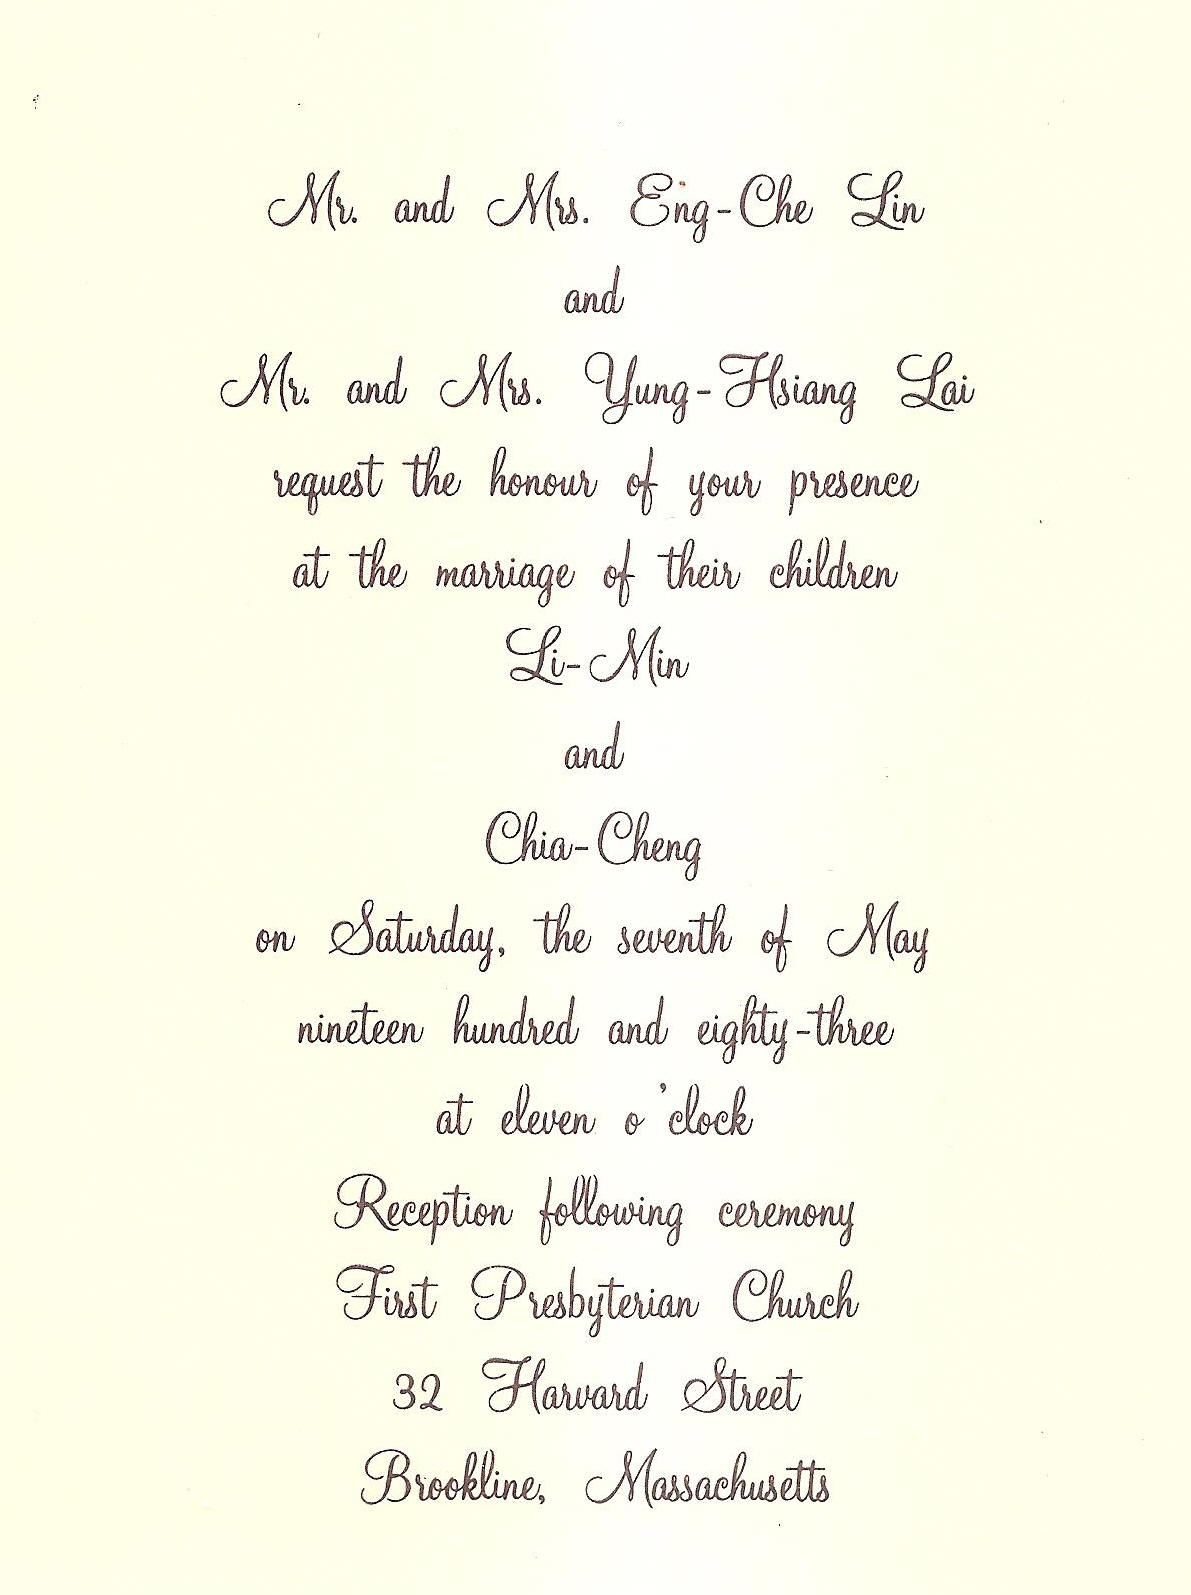 Mr. and Mrs. Eng-Che Lin
and
Mr. and Mrs. Yung-Hsiang Lai
request the honour of your presence
at the marriage of their children
Li-Min
and
Chia-Cheng
on Saturday, the seventh of May
nineteen hundred and eighty-three
at eleven o'clock
Reception following ceremony
First Presbyterian Church
32 Harvard Street
Brookline, Massachusetts